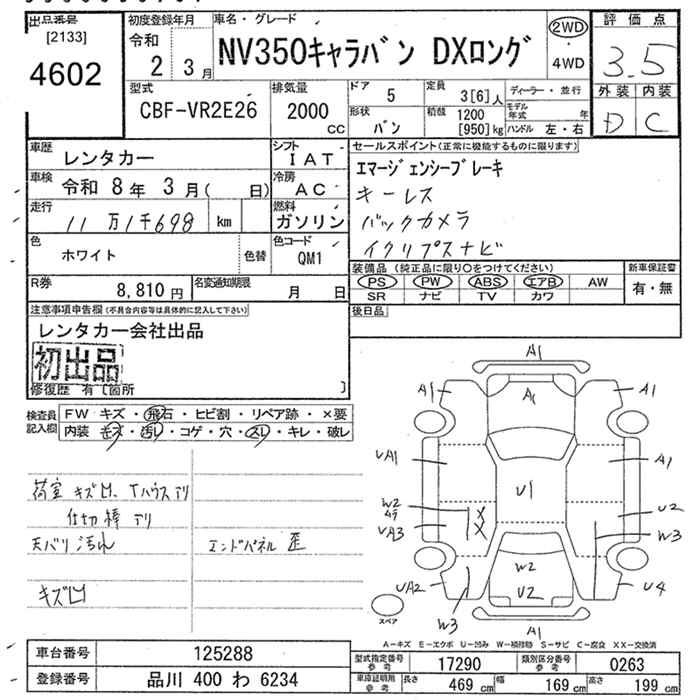 出品番号
[2133]
4602
初度登録年月
令和
2 3月
車名・グレード
NV350キャラバン DXロング
2WD
・
4WD
評価点
3.5
外装 内装
D C
型式
CBF-VR2E26
排気量
2000
CC
ドア
5
定員
3[6]人
ディーラー・並行
形状
バン
積載
1200
[950]kg
モデル年式 年
ハンドル 左・右
車歴
レンタカー
シフト
IAT
車検
令和 8年 3月( 日)
冷房
AC
走行
11万1千698 km
燃料
ガソリン
色
ホワイト
色替
色コード
QM1
R券
8,810円
名変通知期限
月 日
セールスポイント(正常に機能するものに限ります)
エマージェンシーブレーキ
キーレス
バックカメラ
イクリプスナビ
装備品 (純正品に限り○をつけてください)
PS PW ABS エアB AW
SR ナビ TV カワ
新車保証書
有・無
後日品
注意事項申告欄(不具合内容等は具体的に記入して下さい)
レンタカー会社出品
初出品
修復歴 有〔箇所 〕
検査員記入欄
FW キズ・飛石・ヒビ割・リペア跡・×要
内装 キズ・汚レ・コゲ・穴・スレ・キレ・破レ
荷室 キズ凹、Tハウスアリ
仕切棒 アリ
天バリ汚れ
エンドパネル 歪
キズ凹
A1
A1
A1
A1
UA1
A1
U1
W2
UA3
X
X
U2
W3
UA2
W3
W2
U2
U4
A1
スペア
A-キズ E-エクボ U-凹み W-補修跡 S-サビ C-腐食 XX-交換済
車台番号
125288
登録番号
品川 400 わ 6234
型式指定番号
参考
17290
類別区分番号
参考
0263
車庫証明用
参考
長さ
469 cm
幅
169 cm
高さ
199 cm